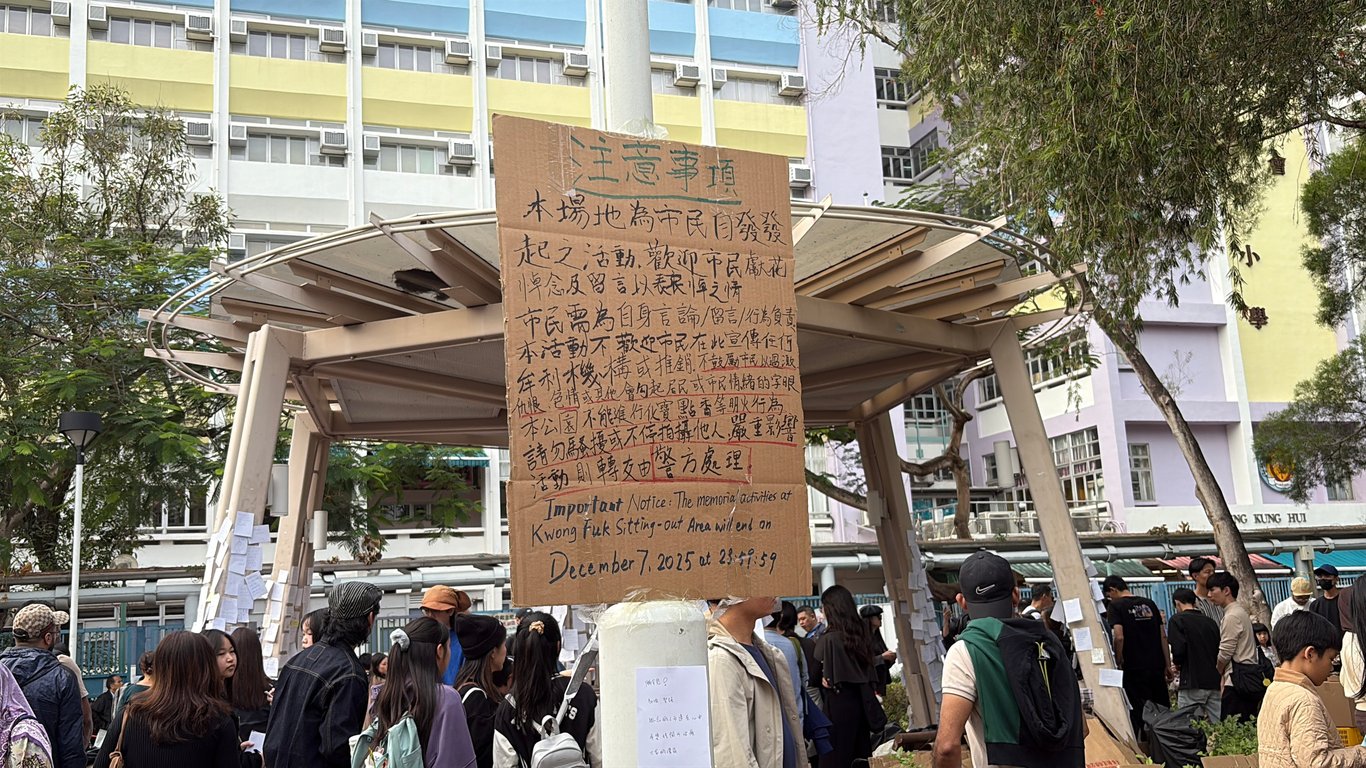 注意事項
本場地為市民自發發
起之活動,歡迎市民獻花
悼念及留言以表哀悼之情
市民需為自身言論/留言/行為負責
本活動不歡迎市民在此宣傳任何
牟利機構或推銷,不鼓勵市民以過激
仇恨、煽情或其他會勾起居民或市民情緒的字眼
本公園不能進行化寶點香等明火行為
請勿騷擾或不停拍攝他人,嚴重影響
活動則轉交由警方處理
Important Notice: The memorial activities at
Kwong Fuk Sitting-out Area will end on
December 7, 2025 at 23:59:59
小
學
KUNG HUI